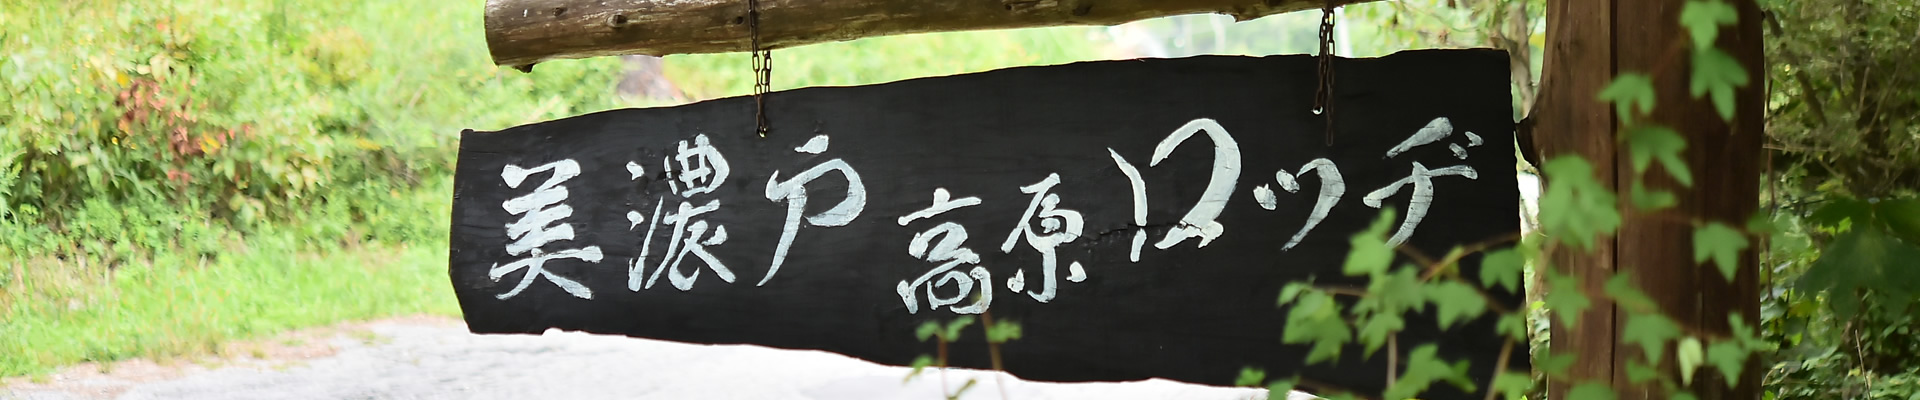 美濃戸高原ロッヂ